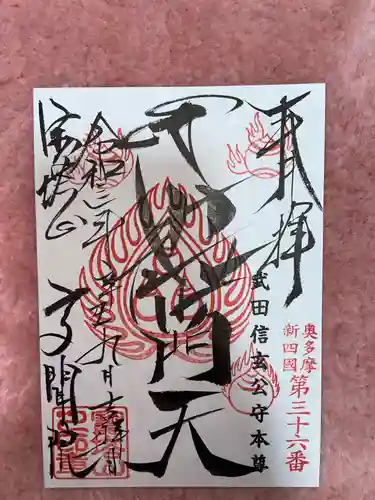 奉拝
奥多摩
新四國
第三十六番
武田信玄公守本尊
毘沙門天
令和三年
九月
宝塔山
多聞院